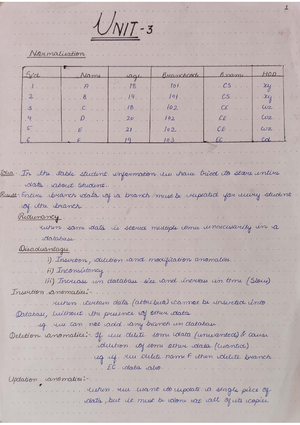 1
UNIT - 3
Normalisation
Name age Branchcode B.name HOD
1 A 18 101 CS xy
2 B 19 101 CS xy
3 C 18 102 CE wz
4 D 20 102 CE wz
5 E 21 102 CE wz
6 F 19 103 EC cd
In the table student information we have tried to store entire
data about student.
Entire branch data of a branch must be repeated for every student
of the branch.
Redundancy
when same data is stored multiple time unnecessarily in a
database
Disadvantage
i) Insertion, deletion and modification anomalies
ii) Inconsistency
iii) Increase in database size and increase in time (slow)
Insertion anomalies:-
when certain data (attribute) cannot be inserted into
Database, without the presence of other data.
eg we can not add any branch in database
Deletion anomalies:- If we delete some data (unwanted) & cause
deletion of some other data (wanted)
eg if we delete name F then delete branch
EC data also.
Updation anomalies:-
when we want to update a single piece of
data, but it must be done at all of its copies.